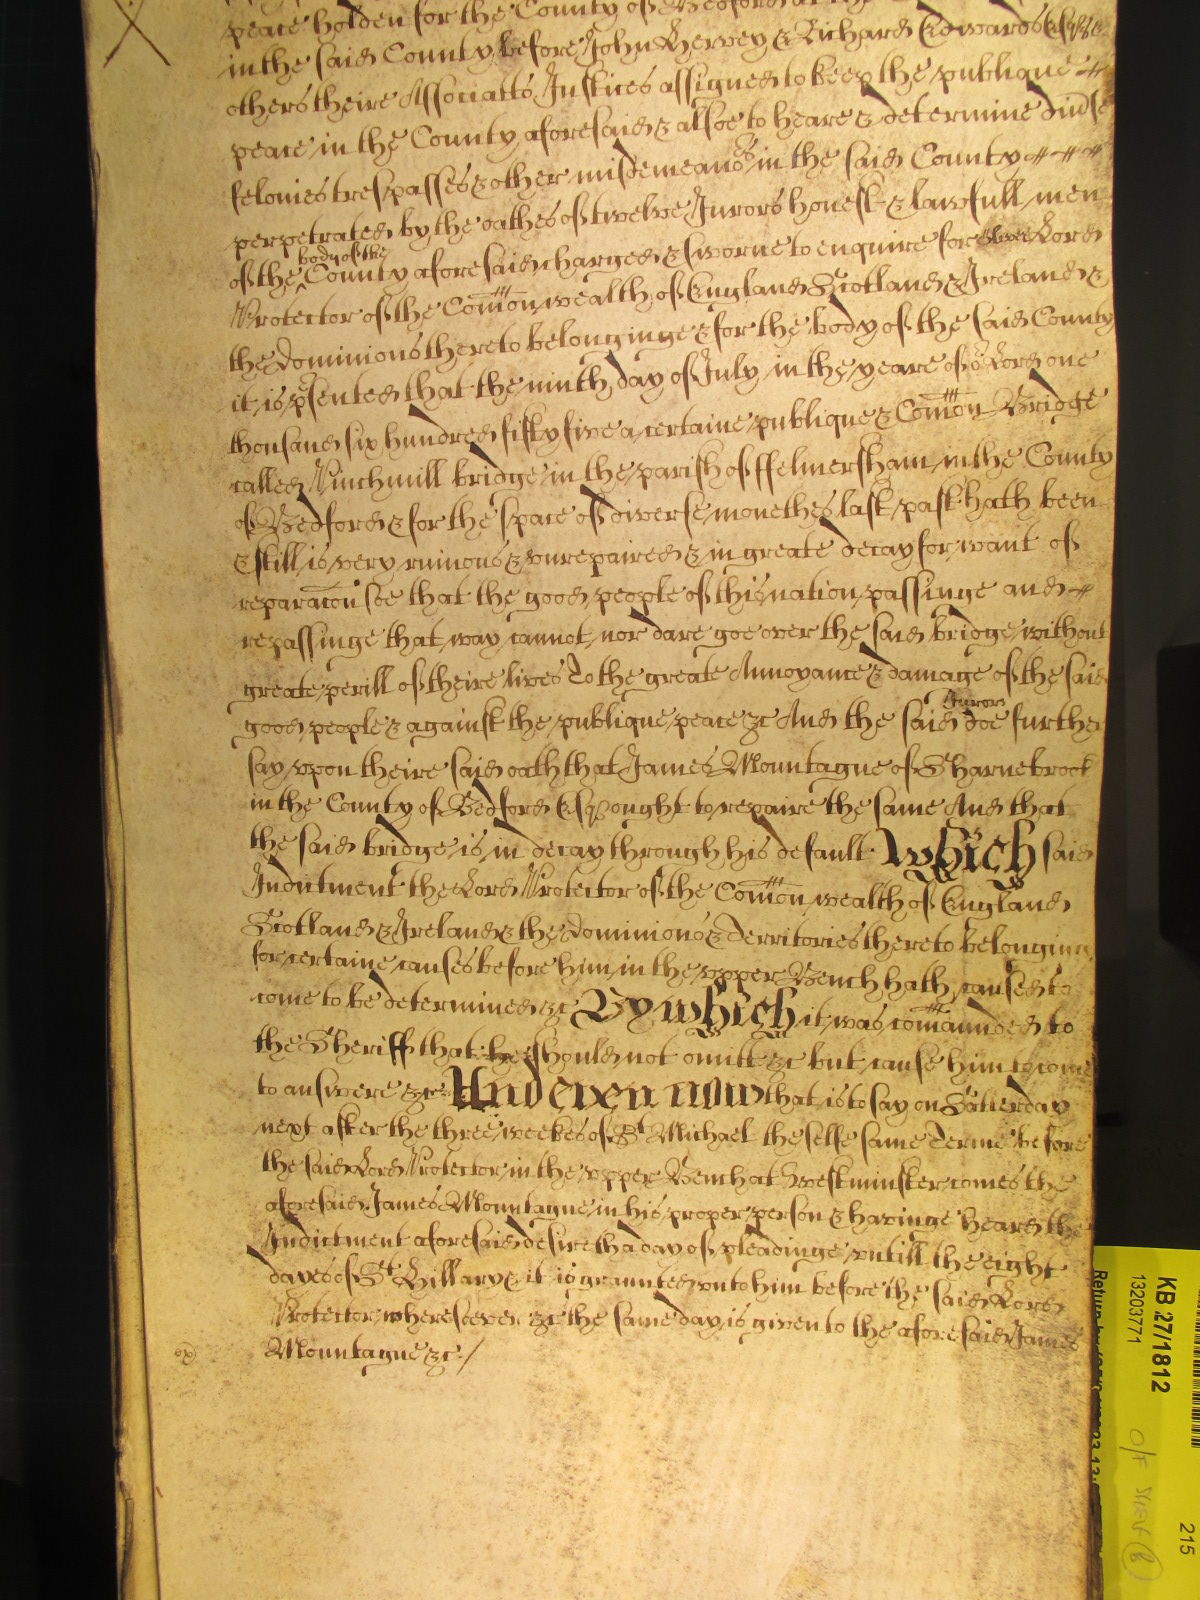 peace holden for the County of Bedford at the
in the said County before John Hervey & Richard Edwards Esqrs &
others theire Associatts Justices assigned to keep the publique
peace in the County aforesaid & alsoe to heare & determine divse
felonies trespasses & other misdemeanors in the said County
perpetrated by the oathes of twelve Jurors honest & lawfull men
of the body of the County aforesaid charged & sworne to enquire for Lord
Protector of the Com̄on wealth of England Scotland & Ireland &
the Dominions thereto belonginge & for the body of the said County
it is p̄sented that the ninth day of July in the yeare of or Lord one
thousand six hundred fifty five a certaine publique & Com̄on Bridge
called Pinchmill bridge in the parish of ffelmersham in the County
of Bedford & for the space of diverse monethes last past hath been
& still is very ruinous & unrepaired & in greate decay for want of
reparac̄on soe that the good people of this nation passinge and
repassinge that way cannot nor dare goe over the said bridge without
greate perill of theire lives To the greate Annoyance & damage of the said
good people & against the publique peace &c And the said Jurors doe further
say upon theire said oath that James Mountague of Sharnebrook
in the County of Bedford Esqr ought to repaire the same And that
the said bridge is in decay through his default Which said
Indictment the Lord Protector of the Com̄on wealth of England
Scotland & Ireland & the Dominions & Territories thereto belonging
for certaine causes before him in the upper Bench hath caused to
come to be determined &c By which it was com̄aunded to
the Sheriff that he should not omitt &c but cause him to come
to answere &c And even now that is to say on Saturday
next after the three weekes of St Michael the selfe same Terme before
the said Lord Protector in the upper Bench at Westminster comes the
aforesaid James Mountague in his proper person & havinge heard the
Indictment aforesaid desireth a day of pleadinge untill the eight
dayes of St Hillary & it is graunted unto him before the said Lord
Protector wheresoever &c the same day is given to the aforesaid James
Mountague &c /
ex
KB 27/1812
13203771
215